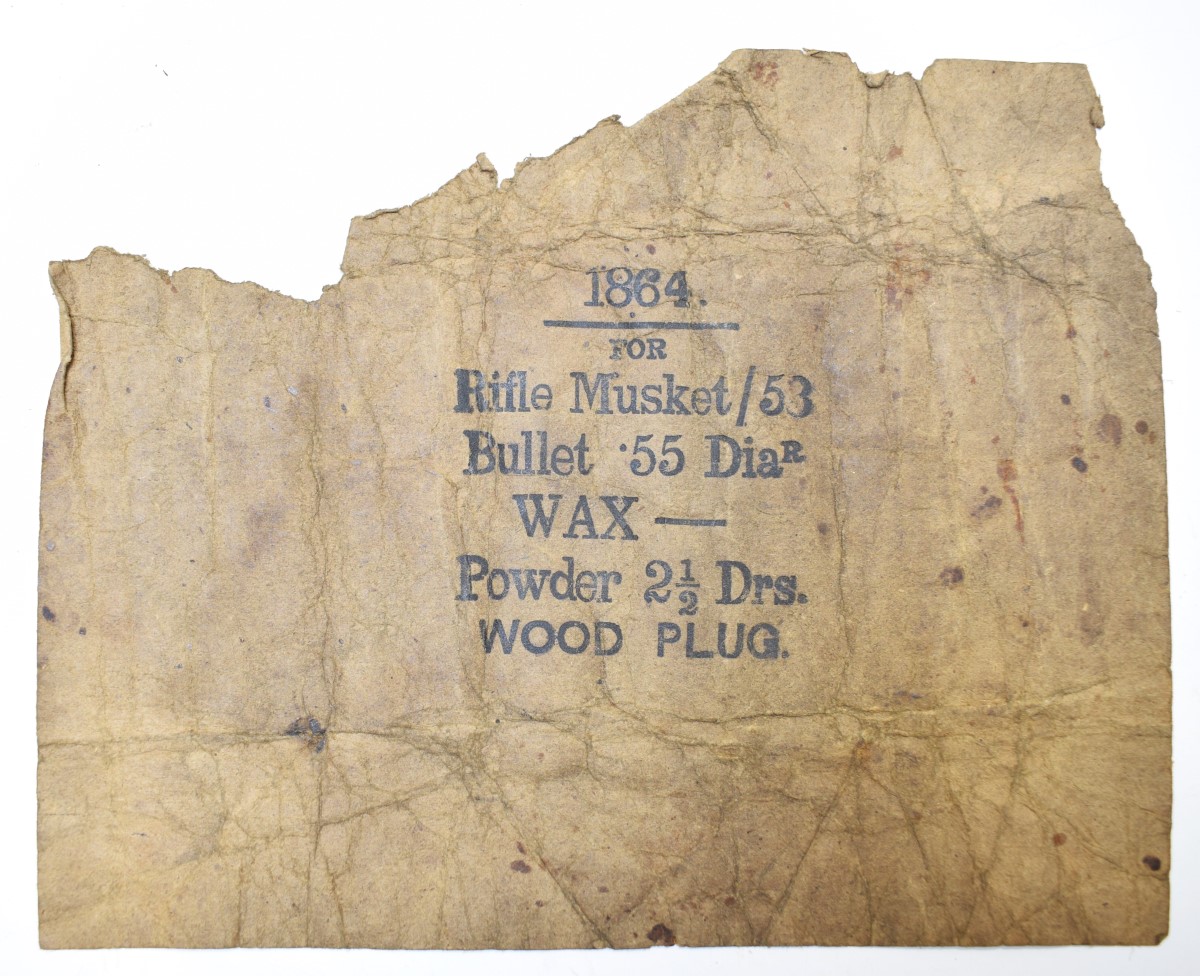 1864.
FOR
Rifle Musket/53
Bullet ·55 Diaᴿ
WAX —
Powder 2½ Drs.
WOOD PLUG.